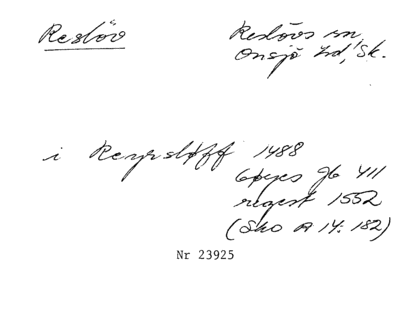 Reslöv
Reslövs sn,
Onsjö hd, Sk.
i Reyrsløff 1488
6øyes Jb 411
regest 1552
(Sko A 14: 182)
Nr 23925